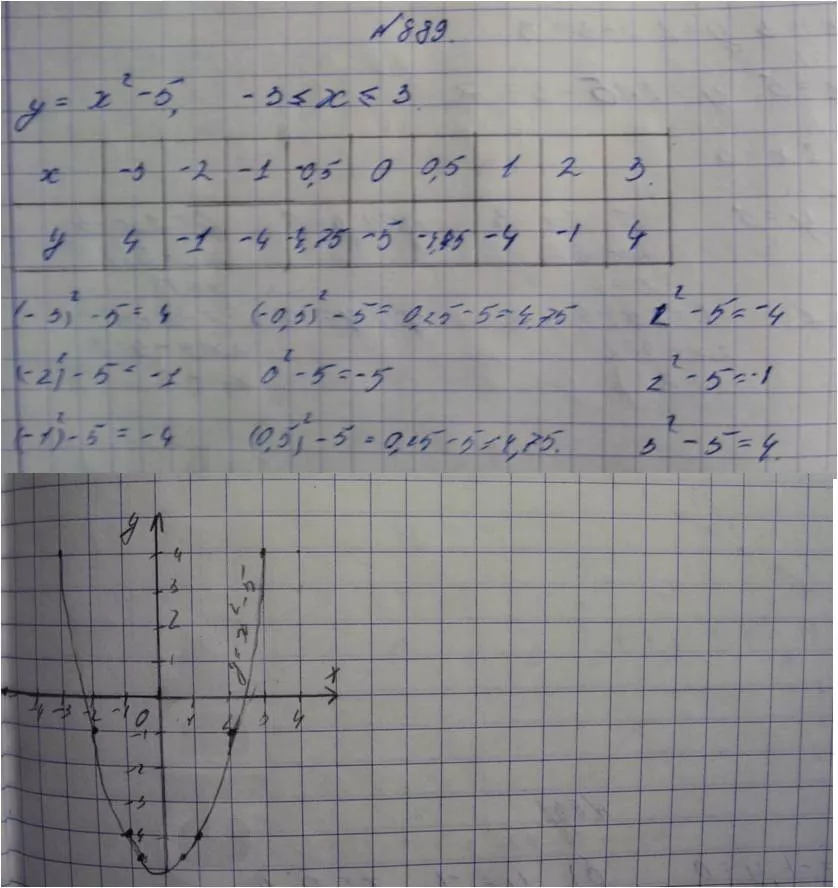 №889.
y = x² - 5, -3 ≤ x ≤ 3
x -3 -2 -1 -0,5 0 0,5 1 2 3
y 4 -1 -4 -4,75 -5 -4,75 -4 -1 4
(-3)² - 5 = 4 (-0,5)² - 5 = 0,25 - 5 = 4,75 1² - 5 = -4
(-2)² - 5 = -1 0² - 5 = -5 2² - 5 = -1
(-1)² - 5 = -4 (0,5)² - 5 = 0,25 - 5 = 4,75. 3² - 5 = 4
y
4
3
2
1
y = x² - 5
x
-4 -3 -2 -1 0 1 2 3 4
-1
-2
-3
-4